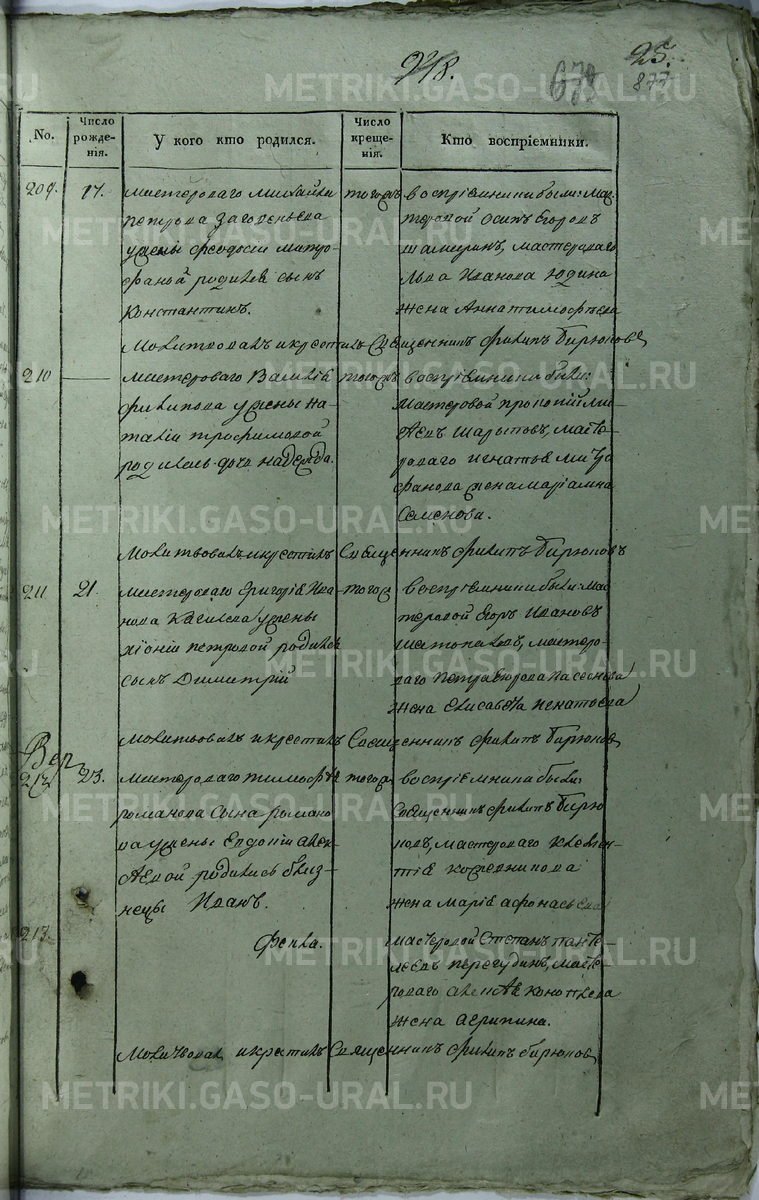 248.
25.
678
877
No.
Число рожде-нія.
У кого кто родился.
Число креще-нія.
Кто воспріемники.
209. 17. мастероваго Михайла
Петрова
у жены Феодосіи Митро-
фановой родился сынъ
Константинъ.
тогожъ
воспріемники были: Мас-
теровой Осипъ Егоровъ
мастероваго
Льва Иванова Юдина
жена Анна Тимофѣева
Молитвовалъ и крестилъ Священникъ Филипъ Бирюковъ
210 — мастероваго Василія
Филипова у жены На-
таліи Трофимовой
родилась дочь Надежда.
тогожъ
воспріемники были:
Мастеровой Прокопій
Шарыповъ, масте-
роваго Игнатья Митро-
фанова жена Маріамна
Семенова.
Молитвовалъ и крестилъ Священникъ Филипъ Бирюковъ
211 21. мастероваго Григорія Ива-
нова у жены
Хіоніи Петровой родился
сынъ Димитрій
тогож
воспріемники были: мас-
теровой Егоръ Ивановъ
мастеро-
ваго Петра
жена Елисавета Игнатьева
Молитвовалъ и крестилъ Священникъ Филипъ Бирюков
Вер.
212 23. мастероваго Тимофѣя
Романова сына Романо-
ва у жены Евдокіи Алек-
сѣевой родились близ-
нецы Иванъ.
тогож
воспріемники были:
Священникъ Филипъ Бирю-
ковъ, мастероваго Клемен-
тія Кожевникова
жена Марія Афонасьева
213 Фекла.
мастеровой Степанъ Панте-
лѣевъ Перегудинъ, масте-
роваго Алексѣя
жена Агрипина.
Молитвовал и крестилъ Священникъ Филипъ Бирюков
METRIKI.GASO-URAL.RU